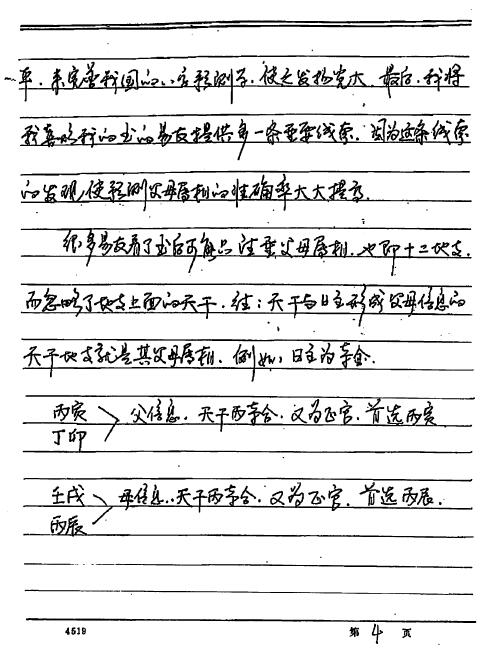 平、来完善我国的八字预测学、使之发扬光大、最后、我将
我喜欢我的书的易友提供多一条重要线索、因为这条线索
的发现,使预测父母属相的准确率大大提高.
很多易友看了书后可能只注重父母属相、也即十二地支.
而忽略了地支上面的天干. 注:天干与日主形成父母信息的
天干地支就是其父母属相. 例如:日主为辛金.
丙寅
丁卯
父信息、天干丙辛合、又为正官、首选丙寅
壬戌
丙辰
母信息、天干丙辛合、又为正官、首选丙辰.
4519
第 4 页